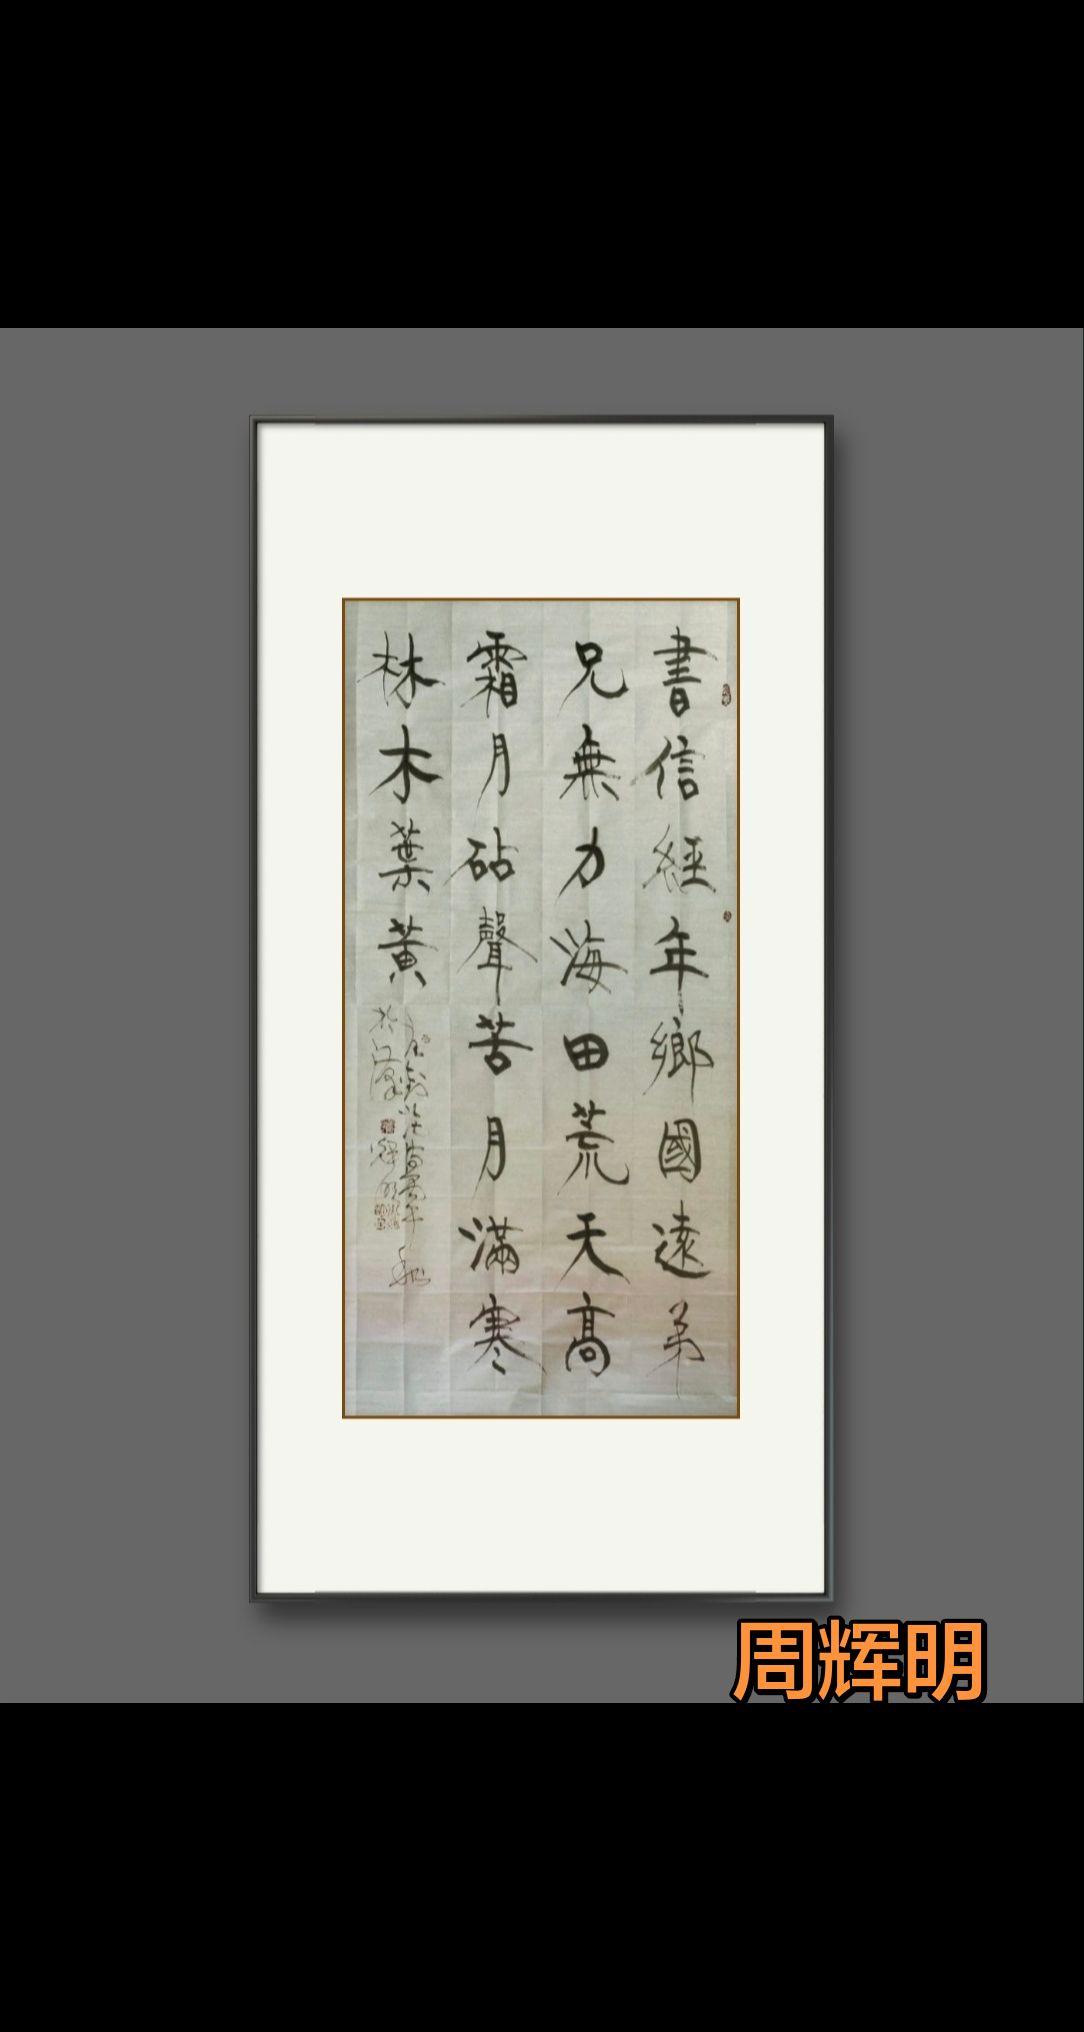 書信經年鄉國遠弟
兄無力海田荒天高
霜月砧聲苦月滿寒
林木葉黃
周辉明